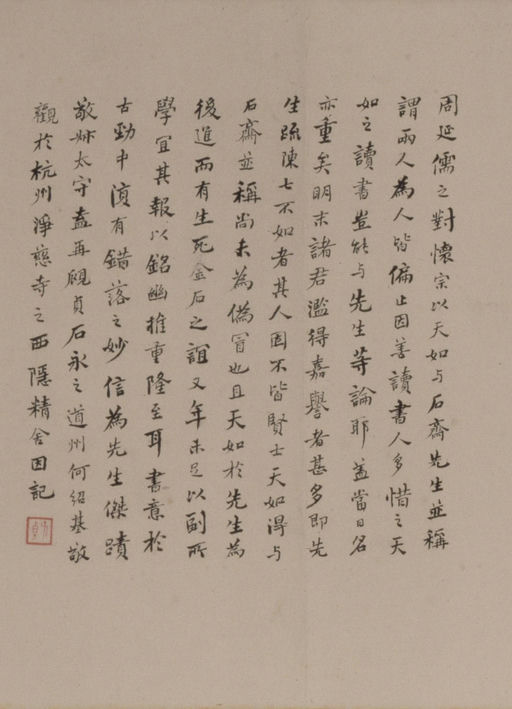 周延儒之對懷宗以天如與石齋先生並稱
謂兩人為人皆偏止因善讀書人多惜之天
如之讀書豈能与先生等論耶蓋當日名
亦重矣明末諸君濫得嘉譽者甚多即先
生疏陳七不如者其人固不皆賢士天如得与
石齋並稱尚未為僞冒也且天如於先生為
後進而有生死金石之誼又年未足以副所
學宜其報以銘幽推重隆至耳書意於
古勁中湏有錯落之妙信為先生傑蹟
敬妳太守盍再覛貞石永之道州何紹基敬
觀於杭州淨慈寺之西隱精舍因記